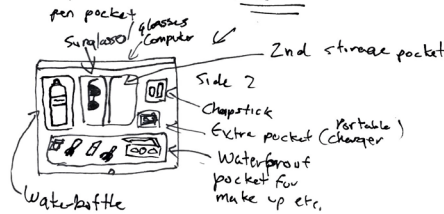 pen pocket
glasses
Sunglasses
Computer
2nd storage pocket
Side 2
Chapstick
Extra pocket (Portable
Charger)
Waterproof
pocket for
make up etc.
Waterbottle